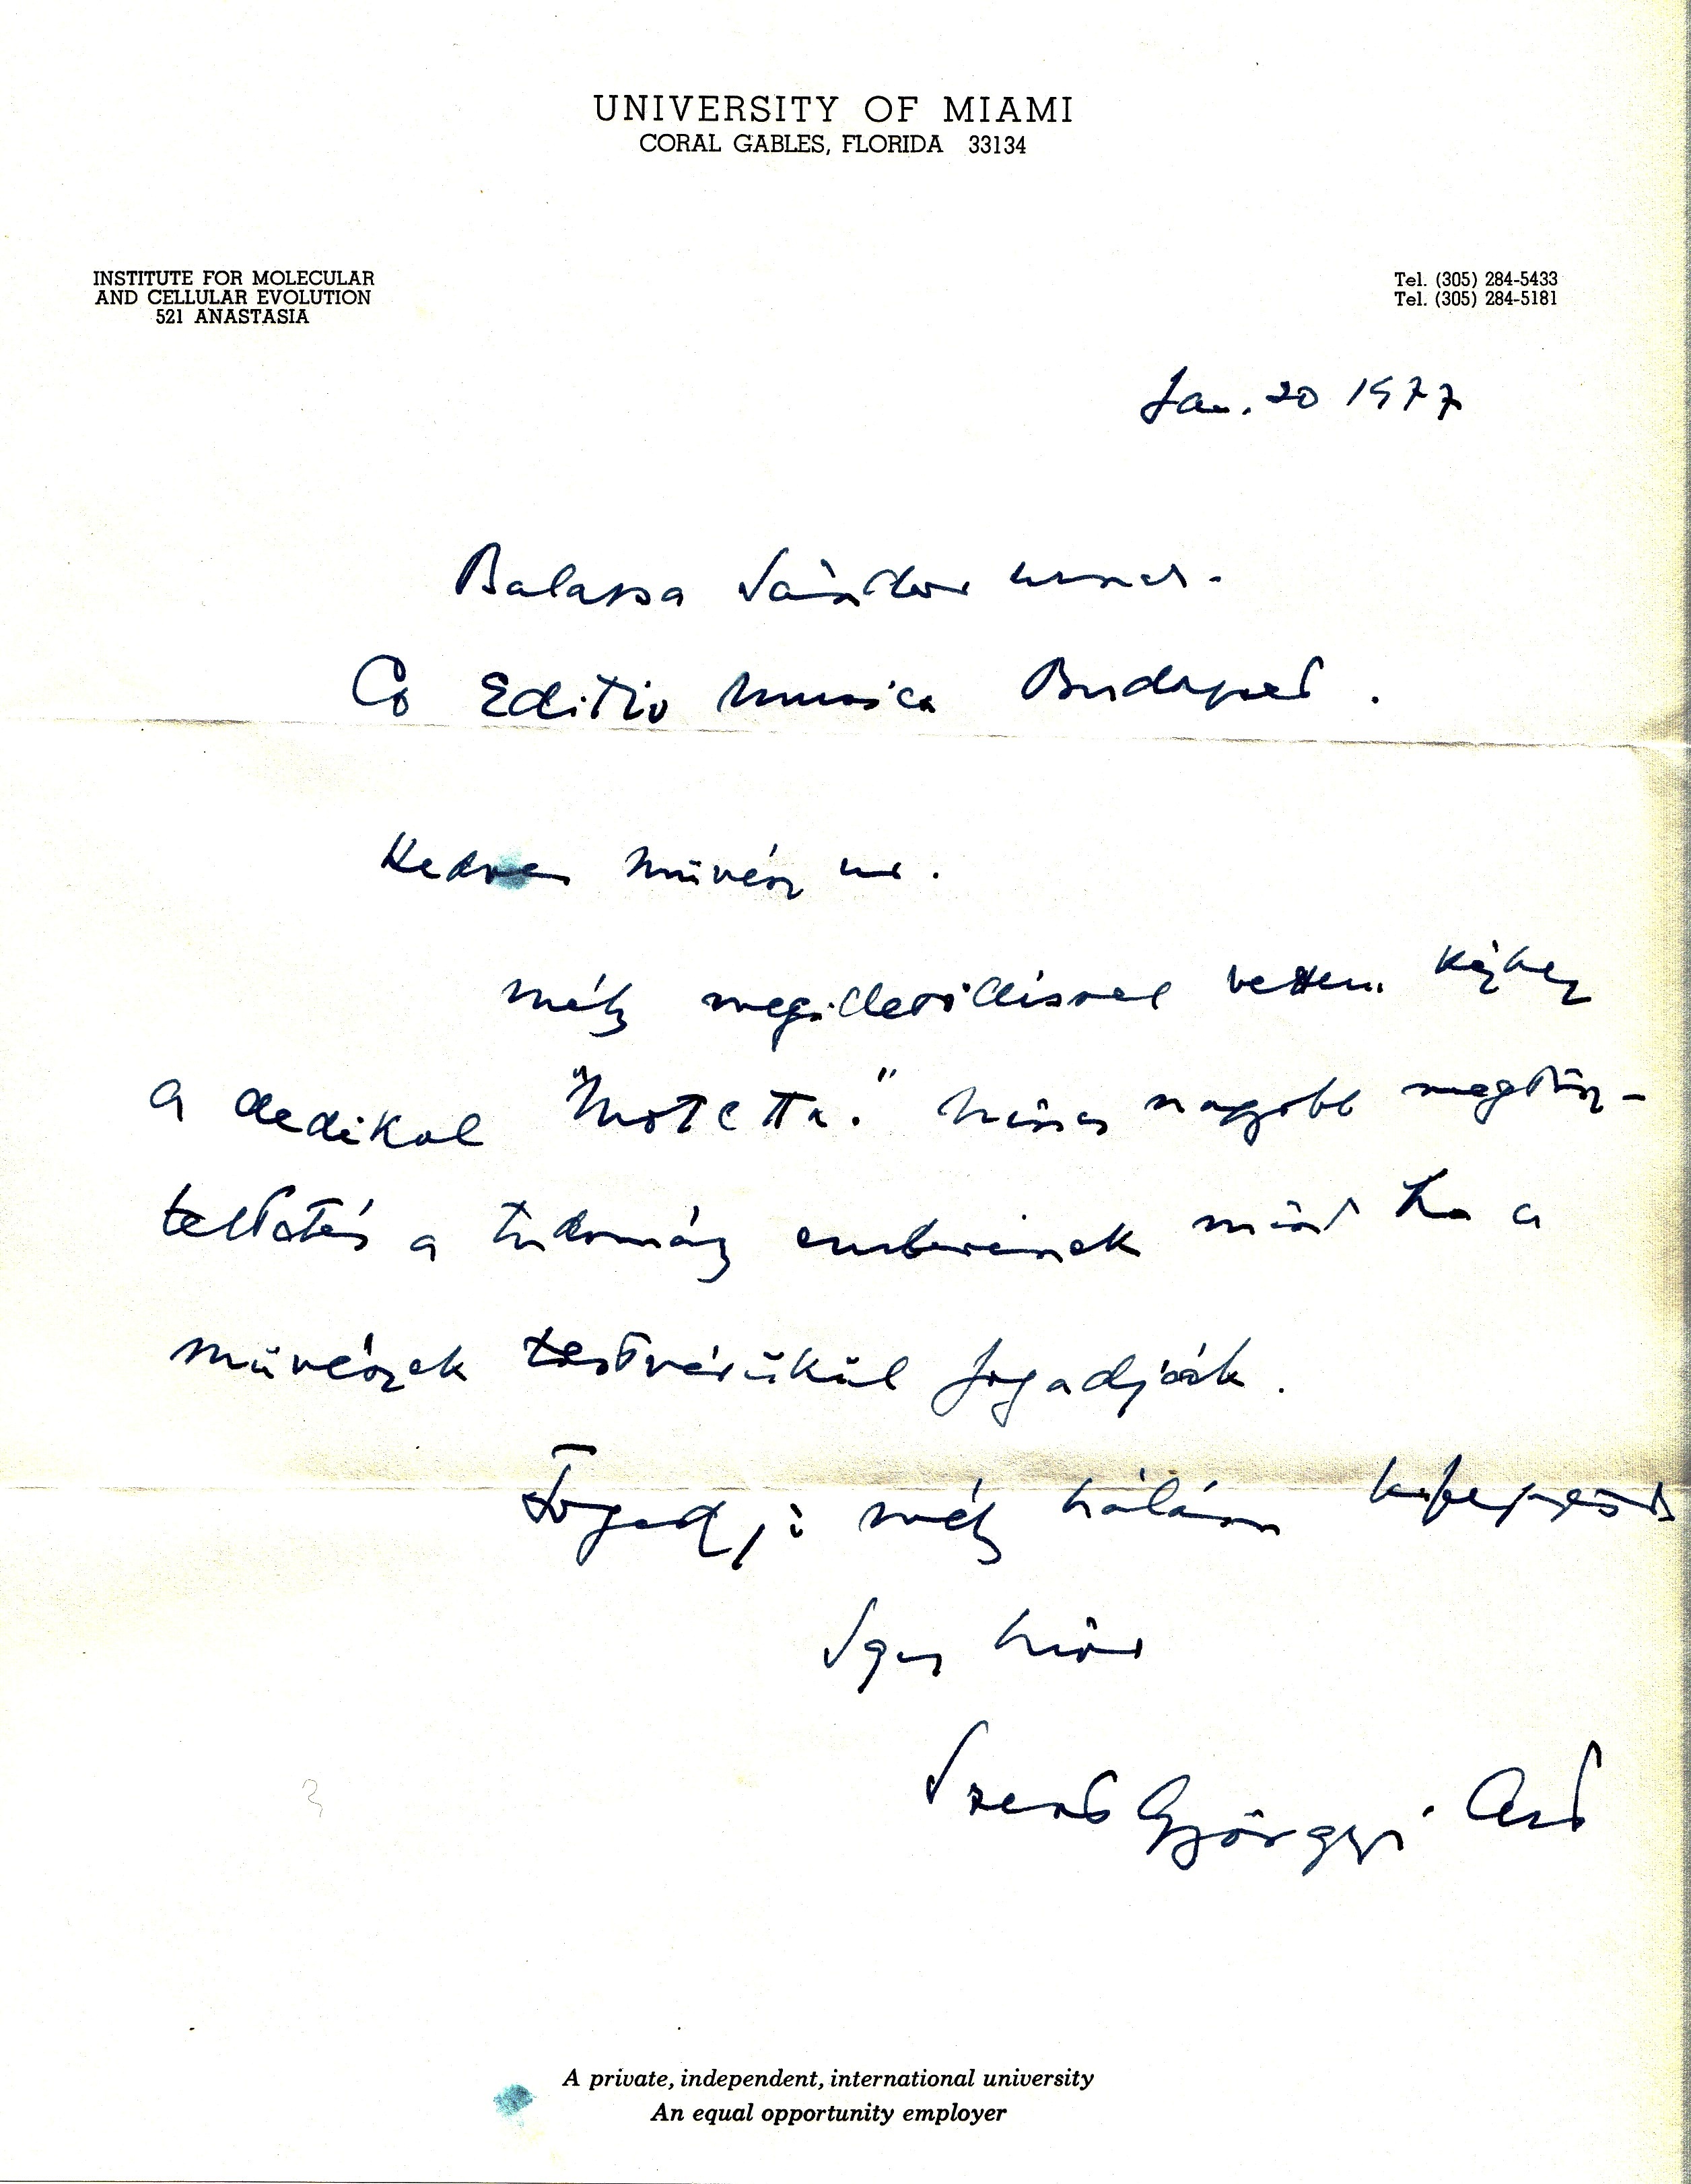 UNIVERSITY OF MIAMI
CORAL GABLES, FLORIDA 33134
INSTITUTE FOR MOLECULAR
AND CELLULAR EVOLUTION
521 ANASTASIA
Tel. (305) 284-5433
Tel. (305) 284-5181
Jan. 20 1977
Balassa Sándor urnak.
Co Editio Musica Budapest.
Kedves Művész ur.
Mély megilletődéssel vettem kézhez
a dedikált "Motetta." Nincs nagyobb megtisz-
teltetés a tudomány embereinek mint ha a
művészek testvérükül fogadják.
Fogadja mély hálám kifejezését
Igaz híve
Szent Györgyi Albert
3
A private, independent, international university
An equal opportunity employer